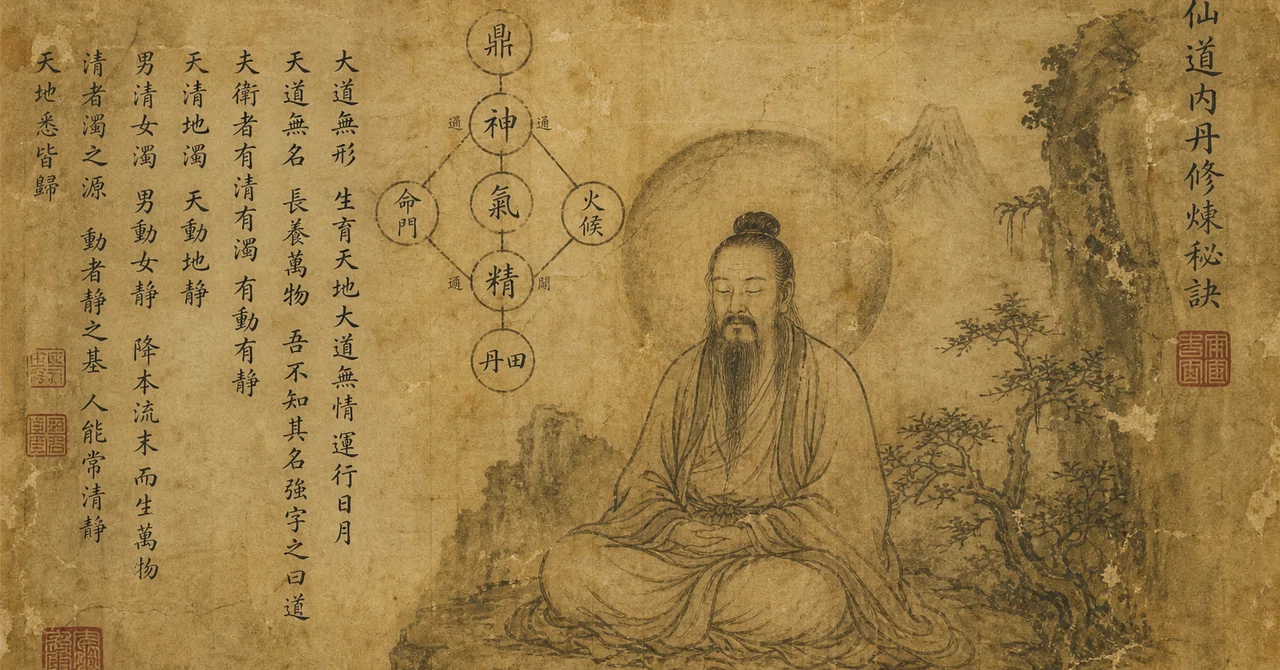 仙道内丹修煉秘訣
鼎
神
通
通
氣
命門
火候
精
通
關
丹田
大道無形 生育天地大道無情運行日月
天道無名 長養萬物 吾不知其名強字之曰道
夫衛者有清有濁 有動有静
天清地濁 天動地静
男清女濁 男動女静 降本流末而生萬物
清者濁之源 動者静之基 人能常清静
天地悉皆歸